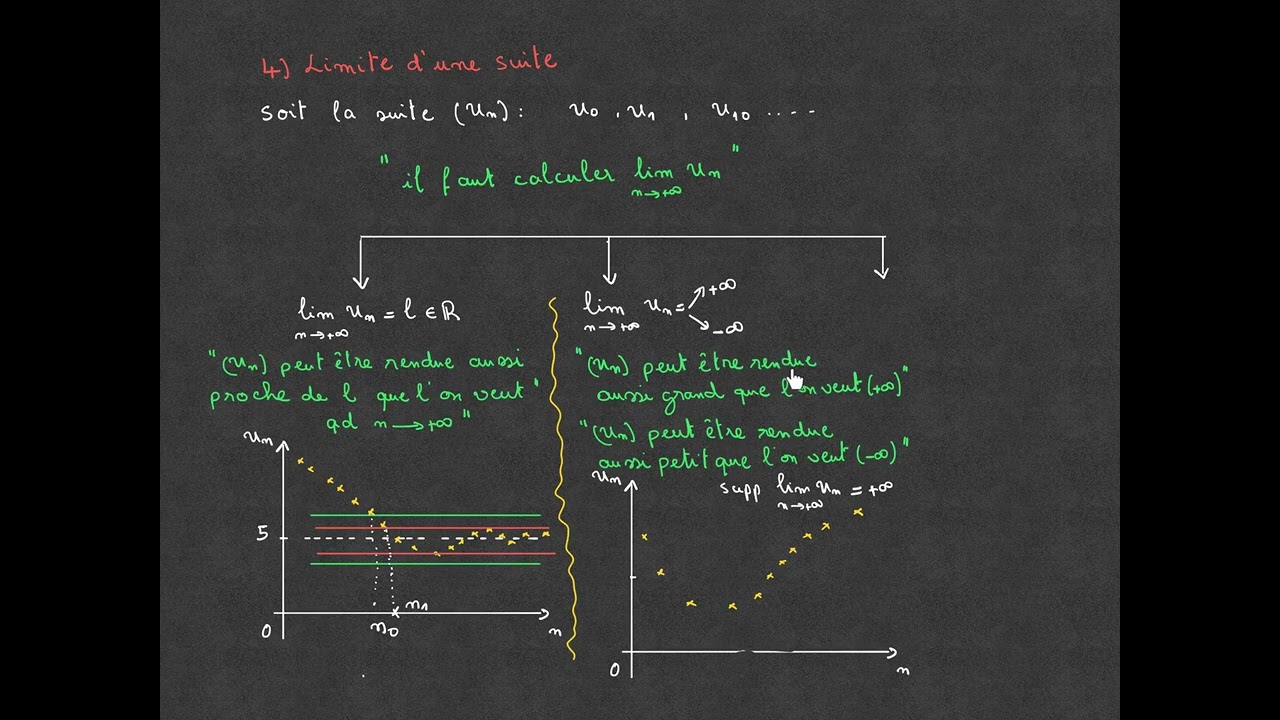 4) Limite d'une suite
soit la suite (un) : u0 , u1 , u10 ....
" il faut calculer lim un "
n→+∞
lim un = l ∈ ℝ
n→+∞
"(un) peut être rendue aussi
proche de l que l'on veut "
qd n → +∞ "
lim un =
n→+∞
+∞
-∞
"(un) peut être rendue
aussi grand que l'on veut (+∞)"
"(un) peut être rendue
aussi petit que l'on veut (-∞)"
un
5
0
n0
n1
n
un
supp lim un = +∞
n→+∞
0
n